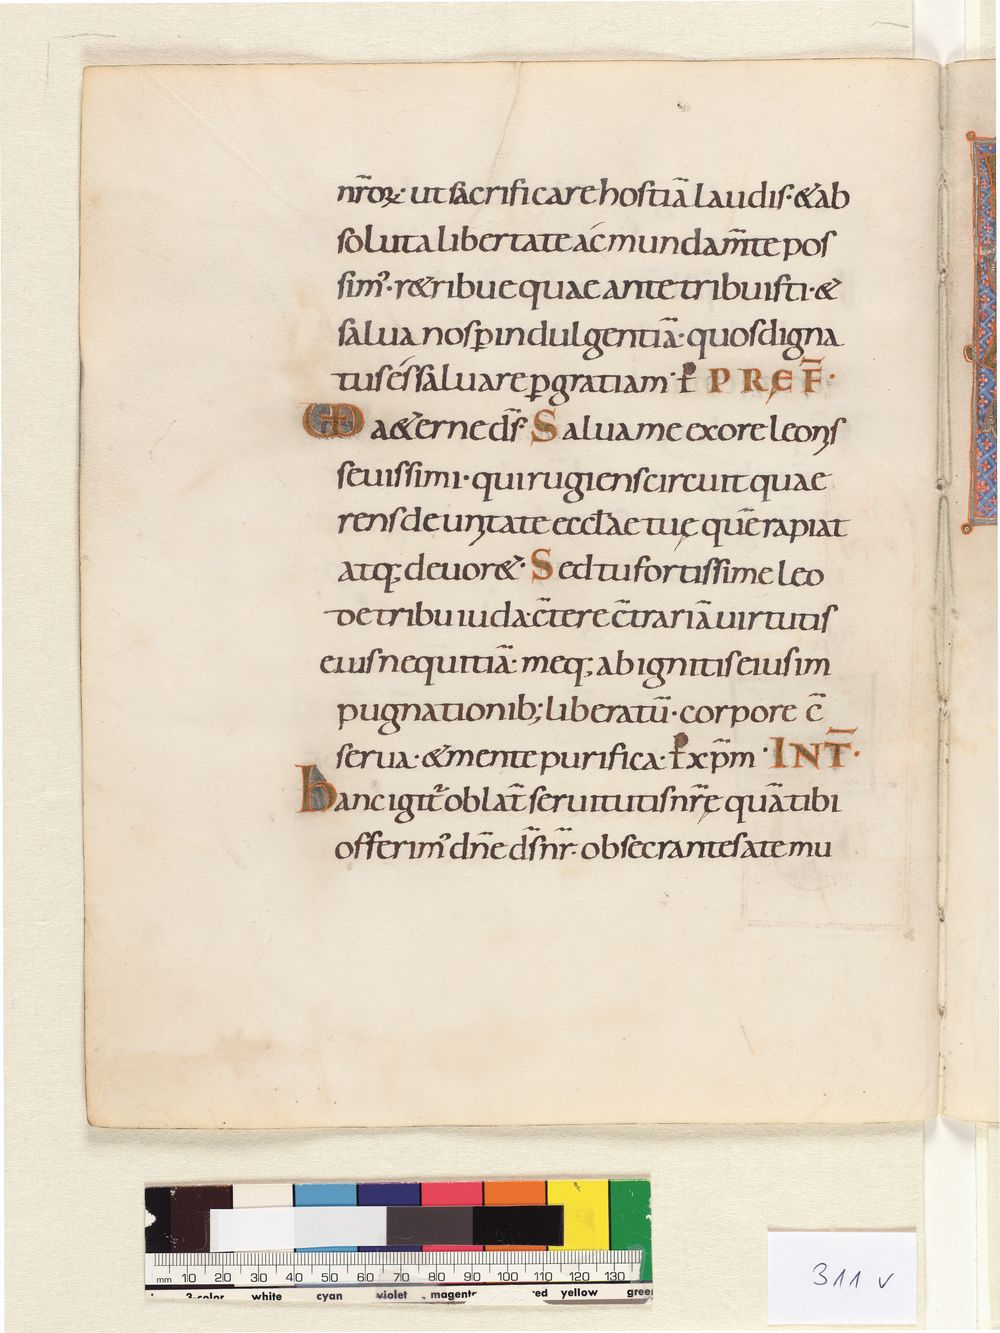 nr̄oꝝ· ut sacrificare hostiā laudis· & ab
soluta libertate ac munda m̄te pos
sim᾽· r&ribue quae ante tribuisti· &
salua nos ꝑ indulgentiā· quos digna
tus és saluare ꝑ gratiam· ꝑ PREF̄·
UD a&erne ds̄ Salua me ex ore leonis
seuissimi· qui rugiens circuit quae
rens de unitate eccłae tuę quē rapiat
atq; deuor&· Sed tu fortissime leo
de tribu iuda· c̄tere c̄trariā uirtutis
eius nequitiā· meq; ab ignitis eius im
pugnationib; liberatū· corpore c̄
serua· & mente purifica· ꝑ xp̄m· INT̄·
hanc igit̄ oblat̄ seruitutis nr̄ę quā tibi
offerim᾽ dn̄e ds̄ nr̄· obsecrantes ate mu
mm 10 20 30 40 50 60 70 80 90 100 110 120 130
3-color white cyan violet magenta red yellow green
311 v